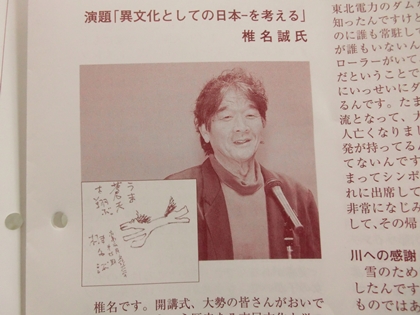 演題「異文化としての日本−を考える」
椎名誠氏
椎名です。開講式、大勢の皆さんがおいで
東北電力のダムな
知ったんですけど
のに誰も常駐して
が誰もいないん
ローラーがいて
だということで
にいっせいにダ
るんです。たま
流となって、大
人亡くなりま
発が持ってるん
てないんです
まってシンポ
れに出席して
非常になじみ
して、その帰
川への感謝
雪のため
したんです
ものではあ